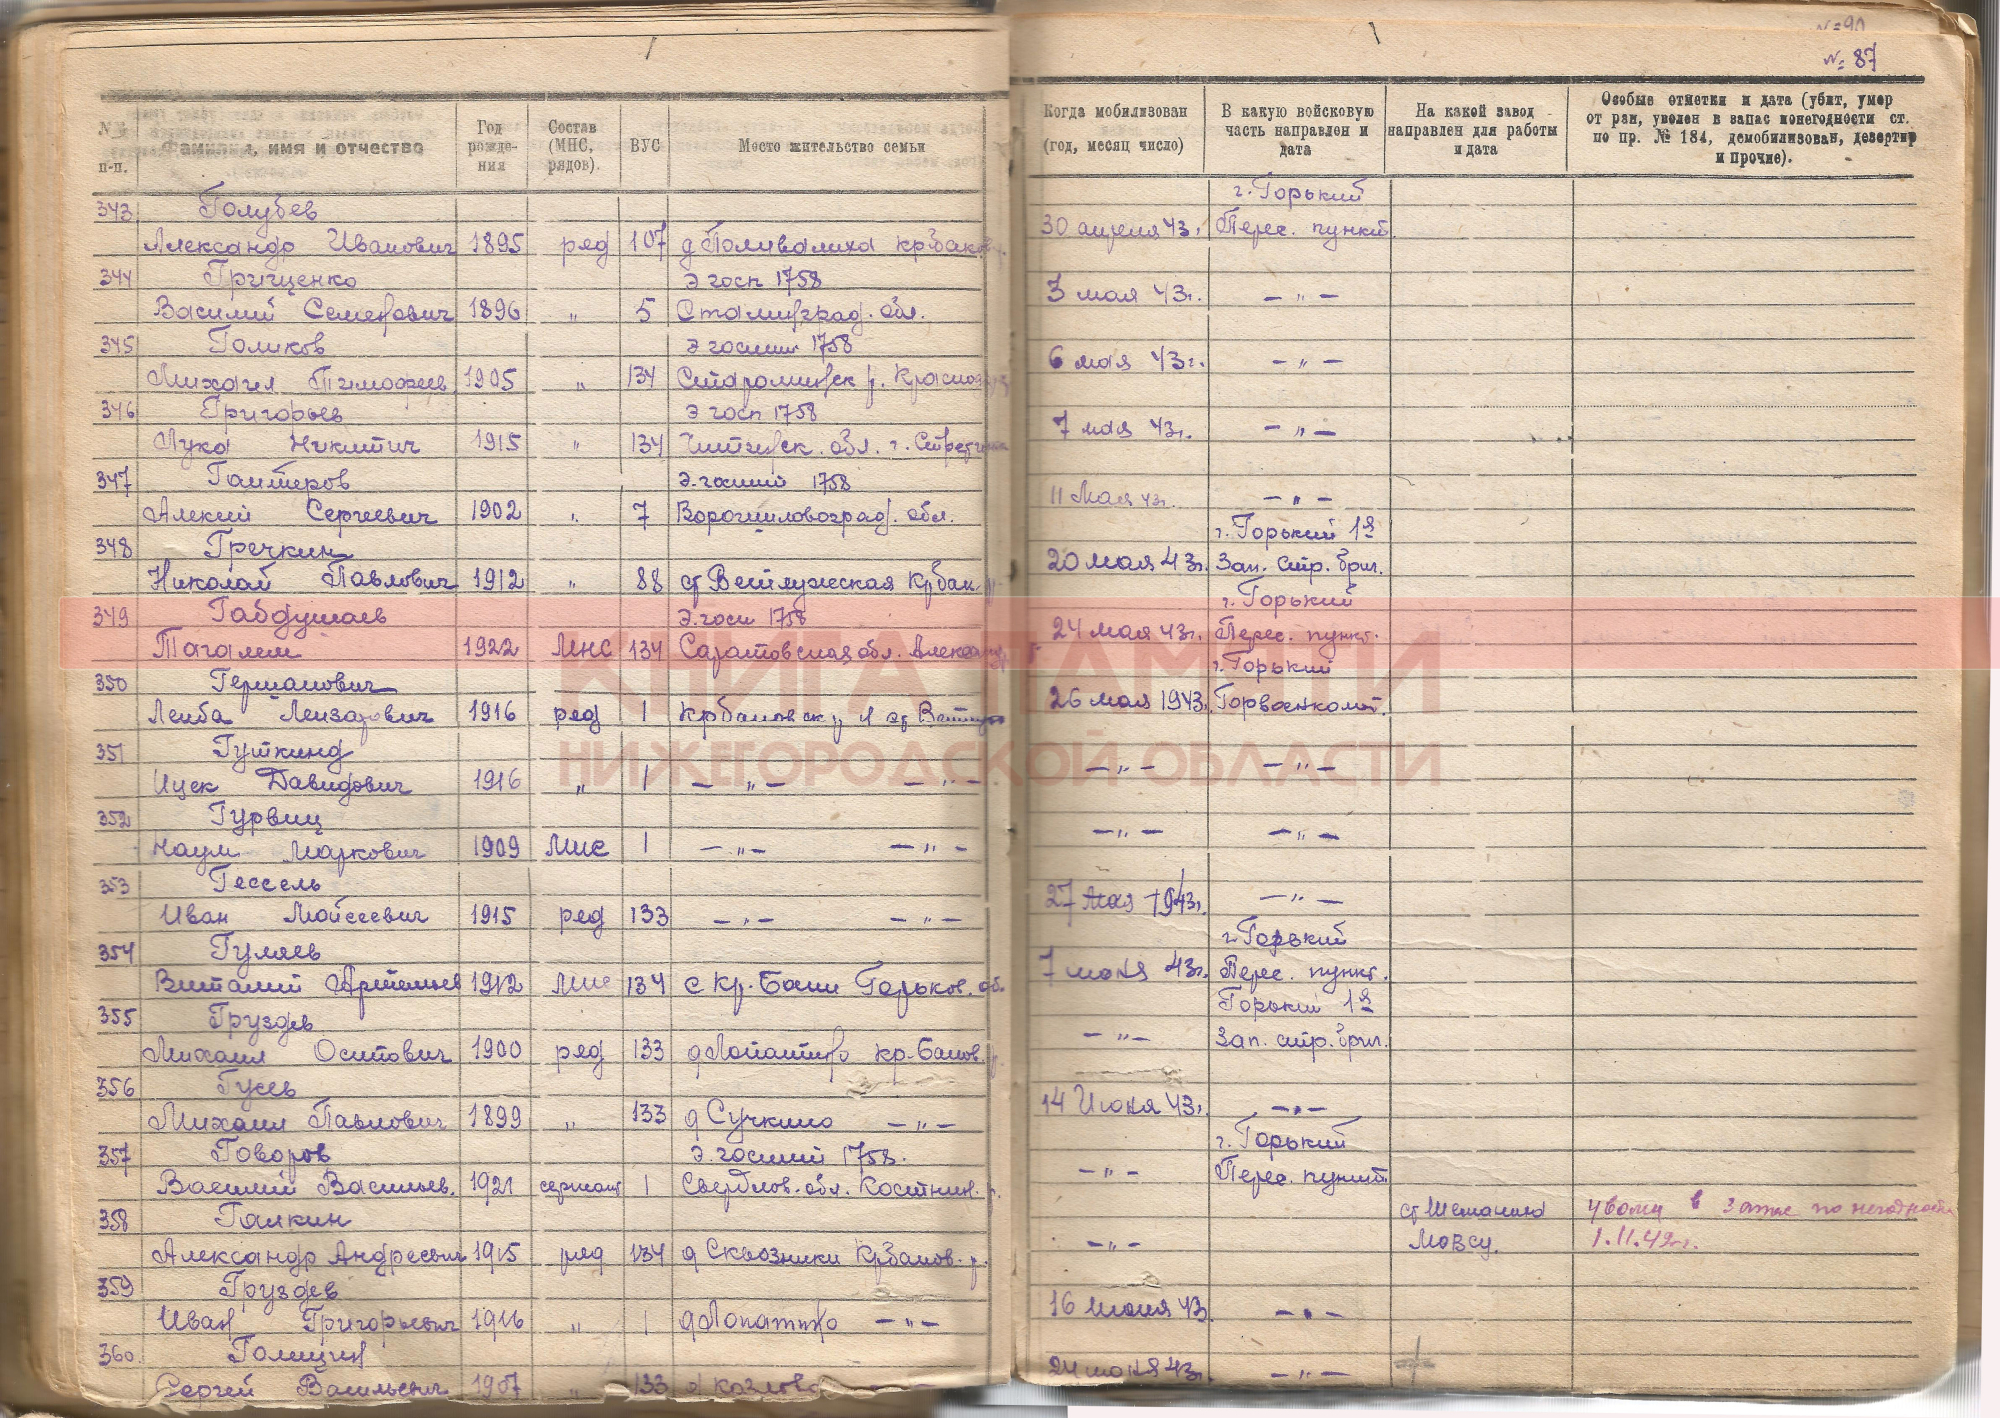 № 90
№ 87
№№ п-п.
Фамилия, имя и отчество
Год рождения
Состав (МНС, рядов).
ВУС
Место жительство семьи
Когда мобилизован (год, месяц число)
В какую войсковую часть направлен и дата
На какой завод направлен для работы и дата
Особые отметки и дата (убит, умер от ран, уволен в запас понегодности ст. по пр. № 184, демобилизован, дезертир и прочие).
343 Голубев г. Горький
Александр Иванович 1895 ряд 107 д Поливалиха 30 апреля 43г. Перес. пункт.
344 Грищенко Э госп 1758
Василий Семенович 1896 „ 5 Сталинград. обл. 3 мая 43г. — „ —
345 Голиков Э госпит 1758
Михаил Тимофеев 1905 „ 134 6 мая 43г. — „ —
346 Григорьев Э госп 1758
Лука Никитич 1915 „ 134 Читинск. обл. г. 7 мая 43г. — „ —
347 Э. госпит 1758
Алексей Сергеевич 1902 „ 7 Ворошиловоград. обл. 11 Мая 43г. — „ —
348 Гречкин г. Горький 1я
Николай Павлович 1912 „ 88 ст Ветлужская Крбак. 20 мая 43г. Зап. стр. бриг.
349 Габдушаев Э. госп 1758 г. Горький
Тагалим 1922 МНС 134 Саратовская обл. 24 мая 43г. Перес. пункт.
КНИГА ПАМЯТИ
350 Германович г. Горький
Лейба Лейзарович 1916 ряд 1 26 мая 1943г. Горвоенкомат.
351 Гуткинд
НИЖЕГОРОДСКОЙ ОБЛАСТИ
Ицек Давидович 1916 „ 1 — „ — — „ — — „ — — „ —
352 Гурвиц
Наум Маркович 1909 МНС 1 — „ — — „ — — „ — — „ —
353 Гессель
Иван Мойсеевич 1915 ряд 133 — „ — — „ — 27 мая 1943г. — „ —
354 Гуляев г. Горький
Виталий Арсентьев 1912 МНС 134 с Кр. Баки Горьков. об. 7 июня 43г. Перес. пункт.
355 Груздев Горький 1я
Михаил Осипович 1900 ряд 133 д Лопатино кр-Баков. р. — „ — Зап. стр. бриг.
356 Гусев
Михаил Павлович 1899 „ 133 д Сучкино — „ — 14 Июня 43г. — „ —
357 Говоров Э. госпит 1758. г. Горький
Василий Васильев. 1921 сержант 1 Свердлов. обл. — „ — Перес. пункт.
358 Галкин ст Шеманиха уволен в запас по негодности
Александр Андреевич 1915 ряд 134 д Сквозники Крбаков. р. — „ — Мовсу. 1.11.42г.
359 Груздев
Иван Григорьевич 1916 „ 1 д Лопатино — „ — 16 июня 43г. — „ —
360. Голицин
Сергей Васильевич 1907 „ 133 д 24 июня 43г. — „ —